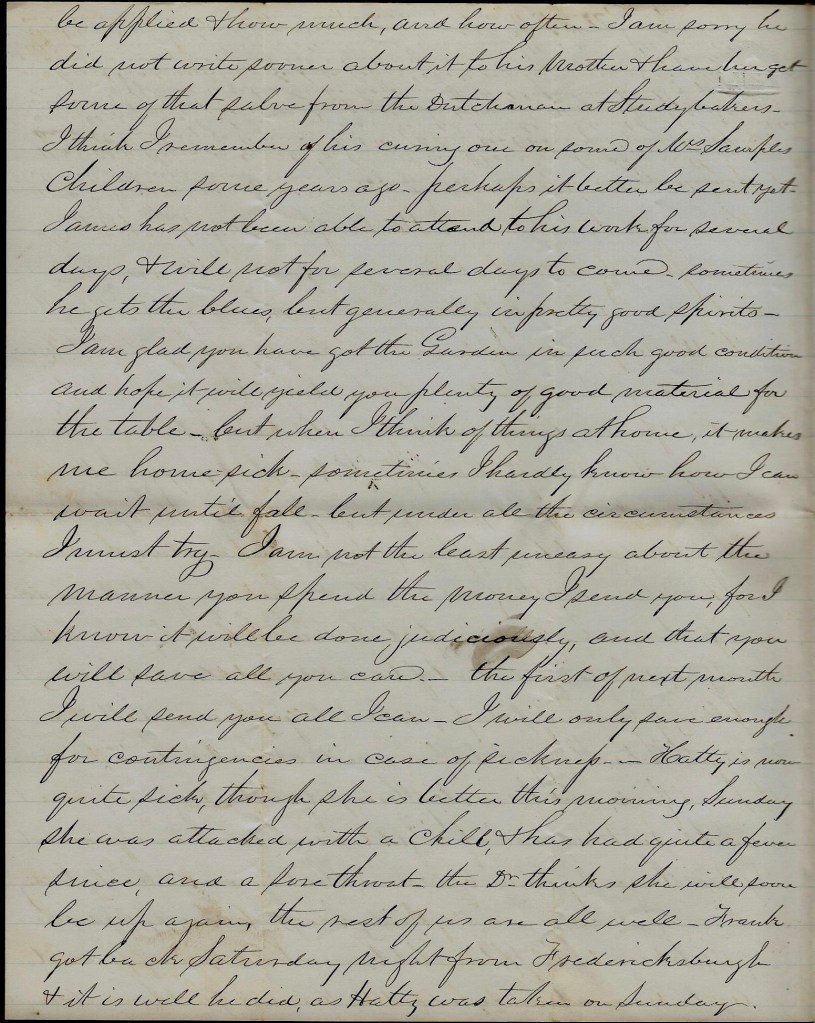 be applied & how much, and how often - I am sorry he
did not write sooner about it to his Mother & have her get
some of that salve from the Dutchman at Studybakers -
I think I remember of his curing one on some of Mrs Samples
Children some years ago - perhaps it better be sent yet -
James has not been able to attend to his work for several
days, & will not for several days to come - sometimes
he gets the blues, but generally in pretty good spirits -
I am glad you have got the Garden in such good condition
and hope it will yield you plenty of good material for
the table - but when I think of things at home, it makes
me home sick - sometimes I hardly know how I can
wait until fall - but under all the circumstances
I must try - I am not the least uneasy about the
manner you spend the money I send you, for I
know it will be done judiciously, and that you
will save all you can - the first of next month
I will send you all I can - I will only save enough
for contingencies in case of sickness - - Hatty is now
quite sick, though she is better this morning, Sunday
she was attacked with a chill, & has had quite a fever
since, and a sore throat - the Dr thinks she will soon
be up again, the rest of us are all well - Frank
got back Saturday night from Fredericksburgh
& it is well he did, as Hatty was taken on Sunday.